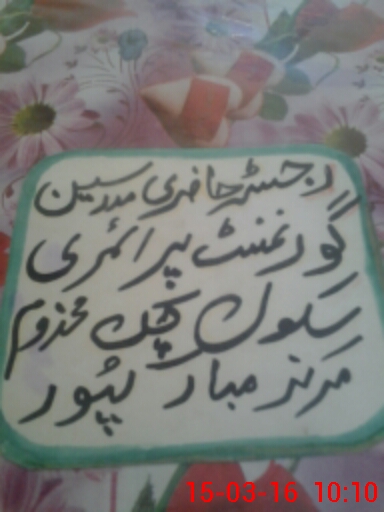 رجسٹر حاضری مدرسین
گورنمنٹ پرائمری
سکول چک مخدوم
مرکز مبارکپور
15-03-16 10:10